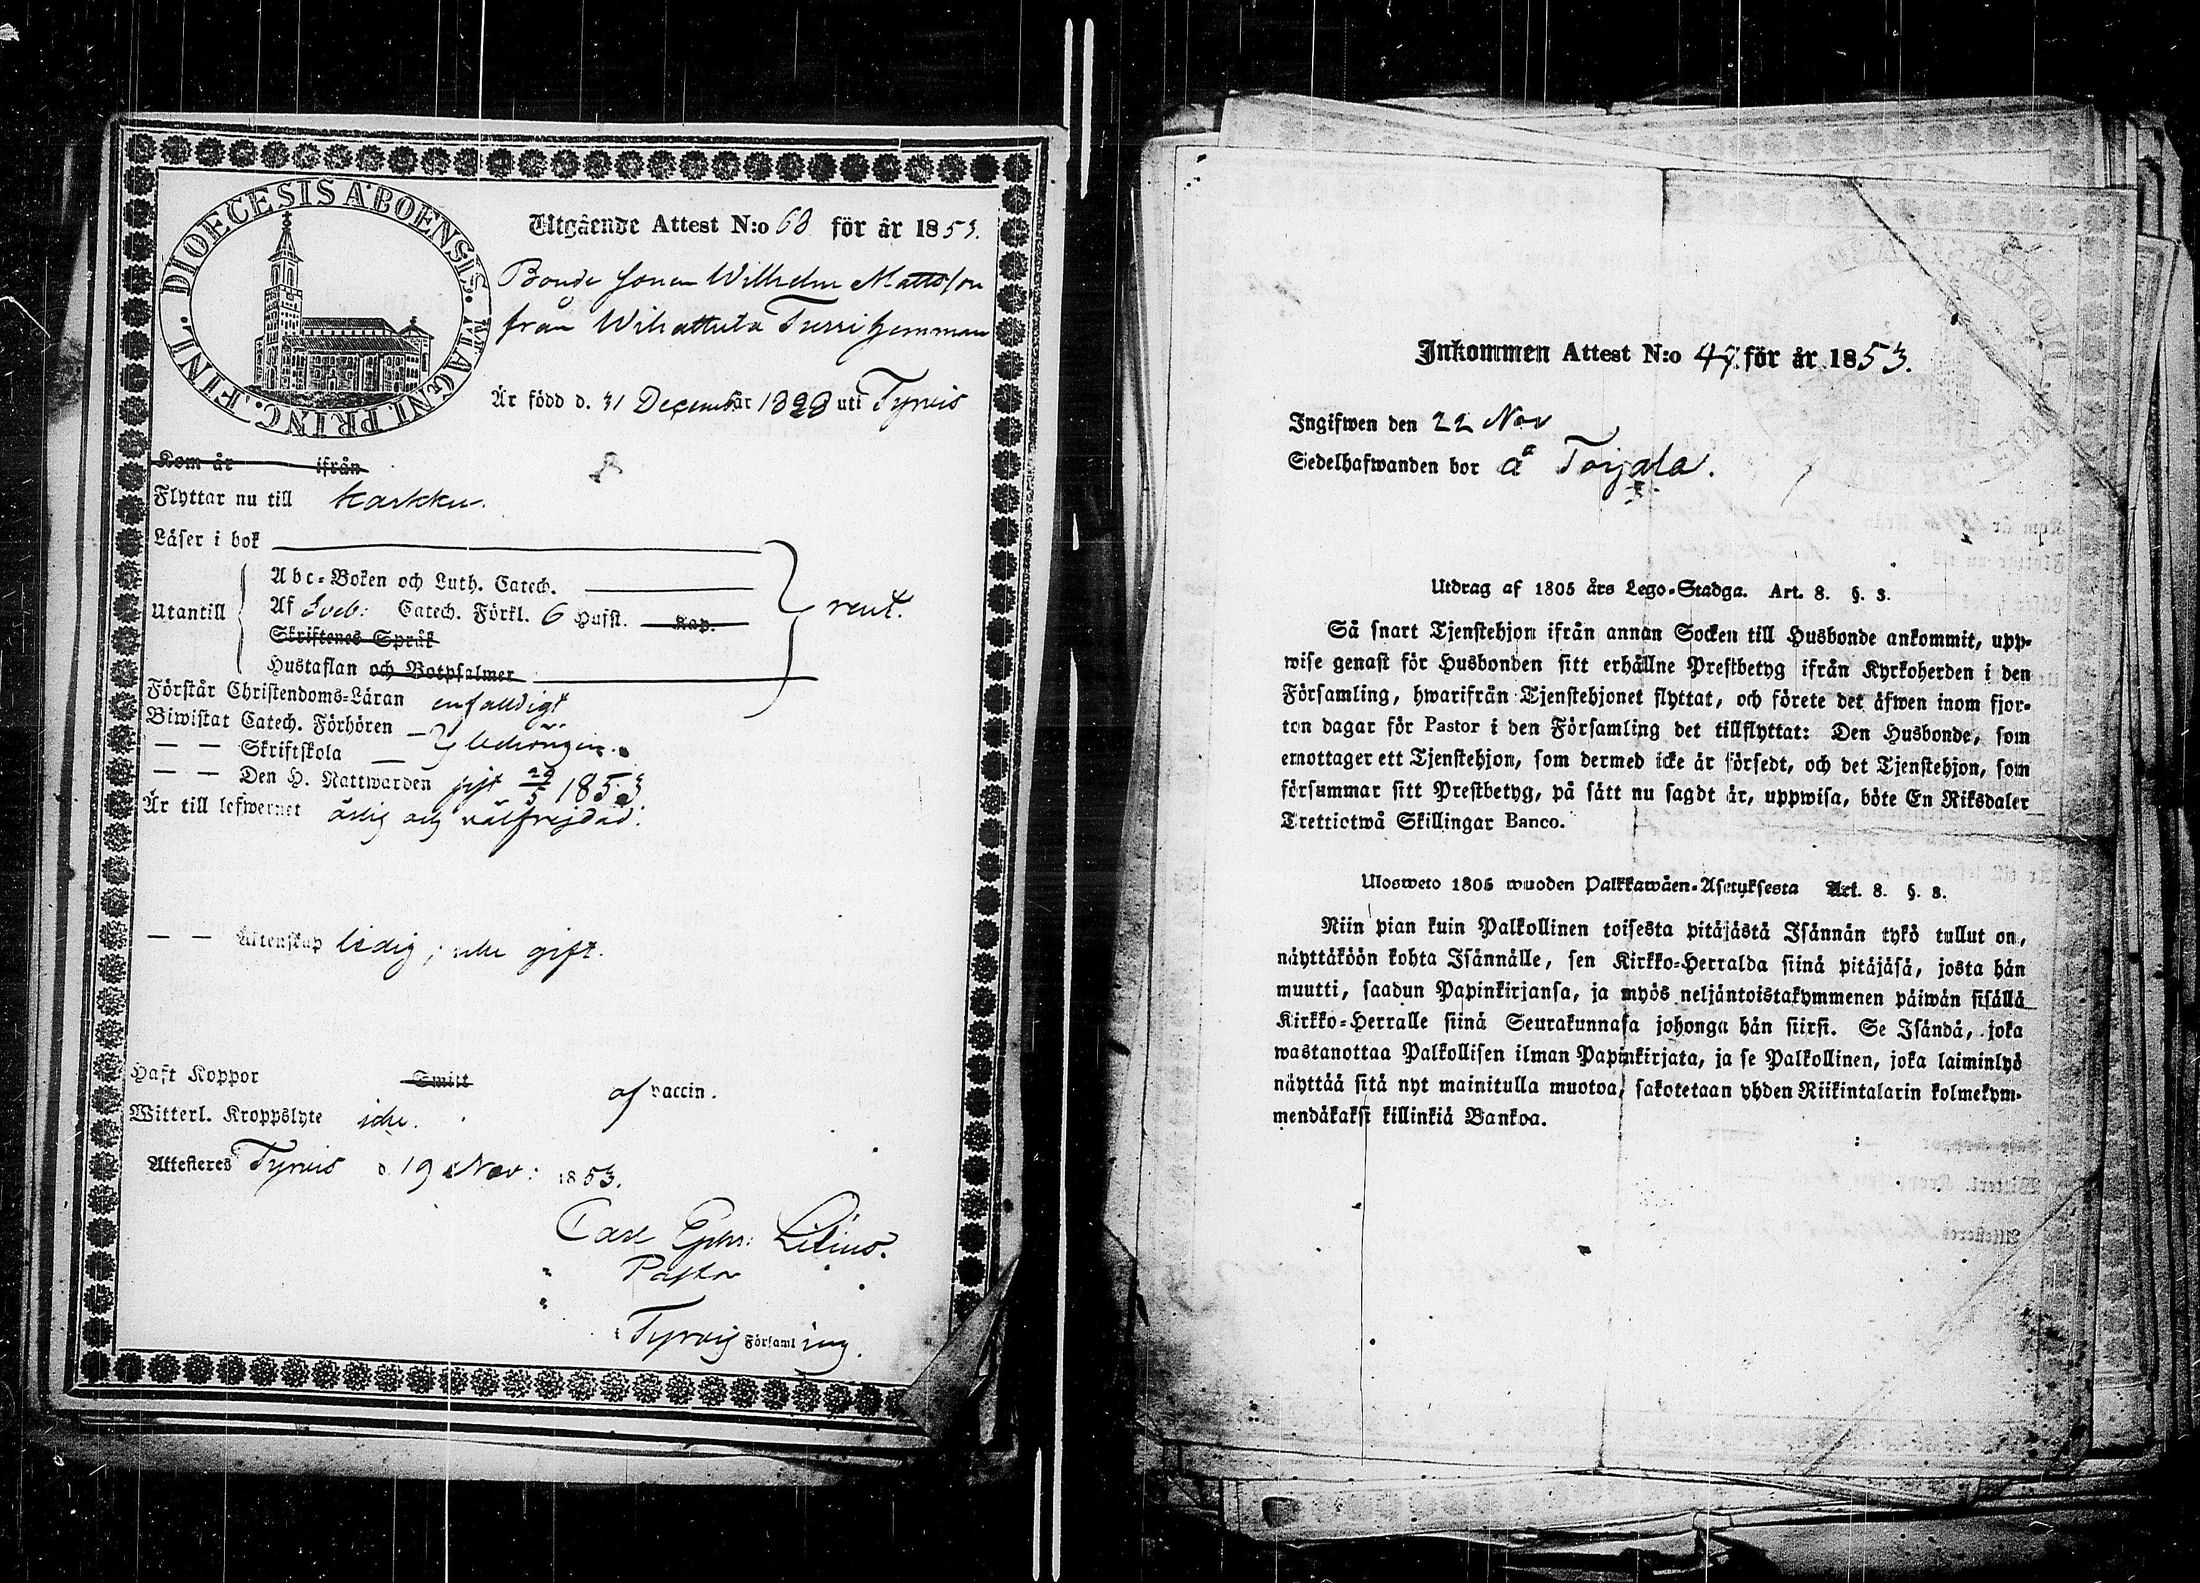 DIOECESIS ABOENSIS. MAGNI. PRINC. FINL.
Utgående Attest N:o 68 för år 1853.
Bonde Sonen Wilhelm Mattsson
från Wihattula Turri hemman
Är född d. 31 December 1828 uti Tyrvis
Kom år ifrån
Flyttar nu till Karkku.
Läser i bok
Abc-Boken och Luth. Catech.
Utantill Af Sveb: Catech. Förkl. 6 Hufst. Kap. rent.
Skriftenes Språk
Hustaflan och Botpsalmer
Förstår Christendoms-Läran enfaldigt
Biwistat Catech. Förhören
— — Skriftskola
— — Den H. Nattwarden sist 29/5 1853.
Är till lefwernet ärlig och välfrejdad.
— — Äktenskap ledig; icke gift.
Haft Koppor Smitt af vaccin.
Witterl. Kroppslyte icke.
Attesteres Tyrvis d. 19 Nov: 1853.
Carl Ephr: Lilius.
Pastor
i Tyrvis Församling.
Inkommen Attest N:o 47. för år 1853.
Ingifwen den 22 Nov
Sedelhafwanden bor å Torjala.
Utdrag af 1805 års Lego-Stadga. Art. 8. §. 3.
Så snart Tjenstehjon ifrån annan Socken till Husbonde ankommit, upp-
wise genast för Husbonden sitt erhållne Prestbetyg ifrån Kyrkoherden i den
Församling, hwarifrån Tjenstehjonet flyttat, och förete det äfwen inom fjor-
ton dagar för Pastor i den Församling det tillflyttat: Den Husbonde, som
emottager ett Tjenstehjon, som dermed icke är försedt, och det Tjenstehjon, som
försummar sitt Prestbetyg, på sätt nu sagdt är, uppwisa, böte En Riksdaler
Trettiotwå Skillingar Banco.
Ulosweto 1805 wuoden Palkkawäen-Asetuksesta Art. 8. §. 3.
Niin pian kuin Palkollinen toisesta pitäjästä Isännän tykö tullut on,
näyttäköön kohta Isännälle, sen Kirkko-Herralda siinä pitäjäsä, josta hän
muutti, saadun Papinkirjansa, ja myös neljäntoistakymmenen päiwän sisällä
Kirkko-Herralle siinä Seurakunnasa johonga hän siirsi. Se Isändä, joka
wastanottaa Palkollisen ilman Papinkirjata, ja se Palkollinen, joka laiminlyö
näyttää sitä nyt mainitulla muotoa, sakotetaan yhden Riikintalarin kolmekym-
mendäkaksi killinkiä Bankoa.